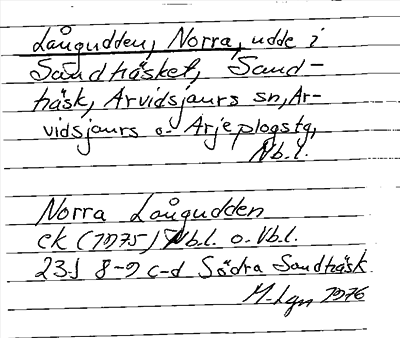 Långudden, Norra, udde i
Sandträsket, Sand-
träsk, Arvidsjaurs sn, Ar-
vidsjaurs o. Arjeplogs tg,
Nb.l.
Norra Långudden
ek (1975) Nb.l. o. Vb.l.
23J 8-9 c-d Södra Sandträsk
M. Lgn 1976